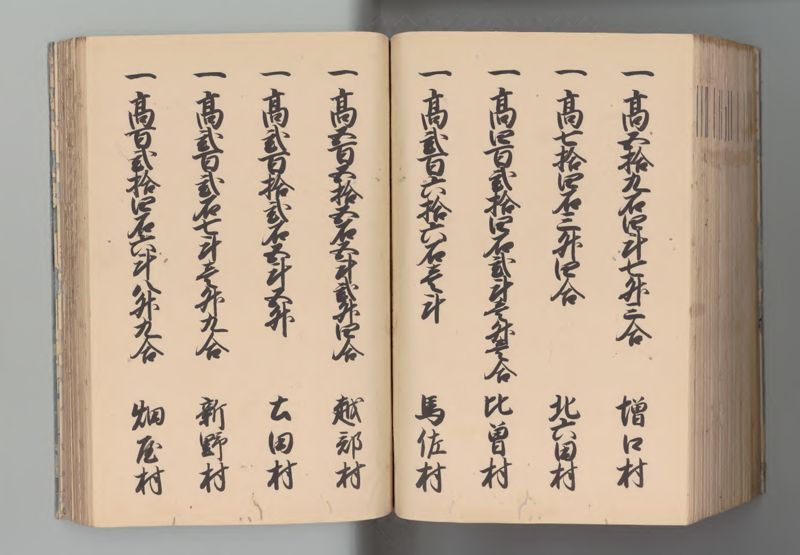 一 高五拾九石四斗七升三合 増口村
一 高七拾四石三升四合 北六田村
一 高四百弐拾四石弐斗壱升壱合 比曽村
一 高弐百六拾六石壱斗 馬佐村
一 高五百五拾五石五斗弐升四合 越部村
一 高弐百拾弐石五斗五升 土田村
一 高弐百弐石七斗壱升九合 新野村
一 高百弐拾四石六斗八升九合 畑屋村